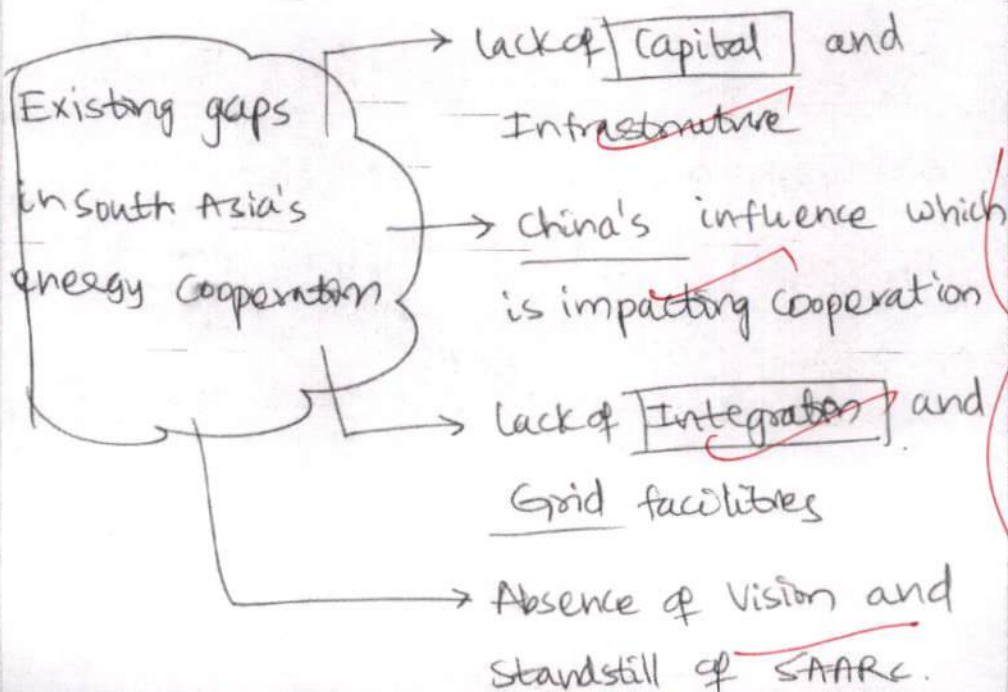 Existing gaps
in South Asia's
energy cooperation
→ lack of Capital and
Infrastructure
→ China's influence which
is impacting cooperation
→ lack of Integration and
Grid facilities
→ Absence of Vision and
Standstill of SAARC.